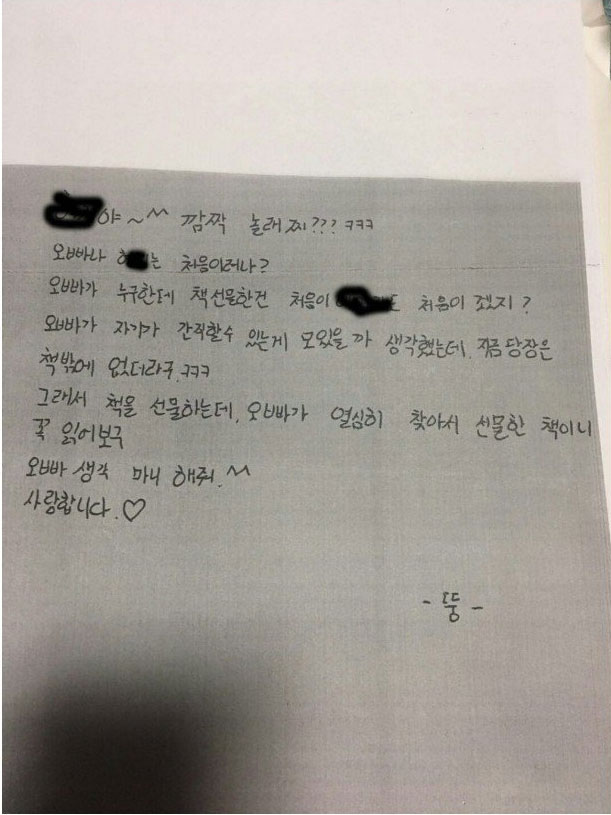 야~^^ 깜짝 놀래찌??? ㅋㅋㅋ
오빠나 는 처음이려나?
오빠가 누구한데 책선물한건 처음이 도 처음이겠지?
오빠가 자기가 간직할수 있는게 모있을까 생각했는데, 지금 당장은
책밖에 없더라구.ㅋㅋㅋ
그래서 책을 선물하는데, 오빠가 열심히 찾아서 선물한 책이니
꼭 읽어보구
오빠 생각 마니 해줘.^^
사랑합니다.♡
- 뚱 -